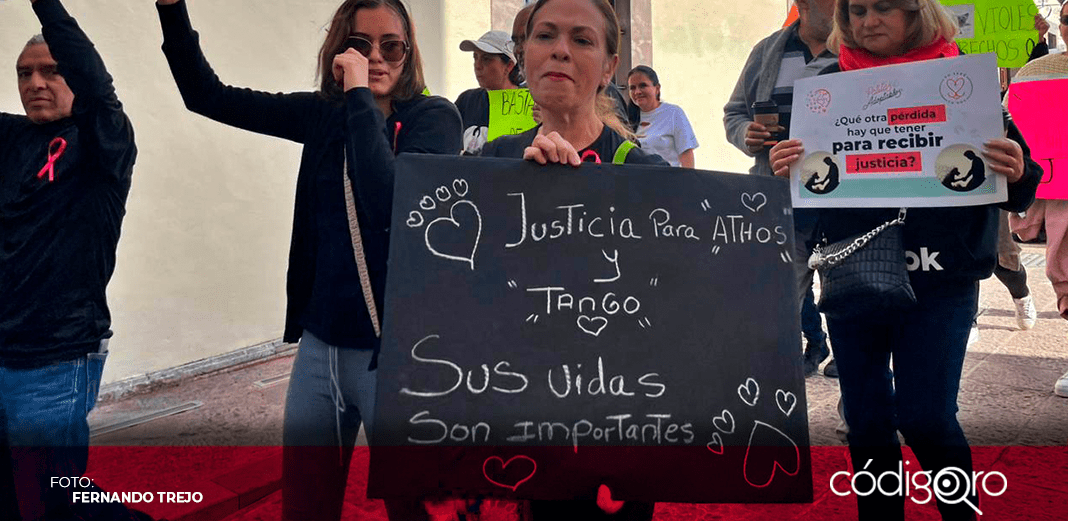 VIOLES
DERECHOS
BASTA
DE
Patitas
Adoptables
¿Qué otra pérdida
hay que tener
para recibir
justicia?
Justicia Para "ATHOS"
y
"TANGO"
Sus vidas
Son importantes
ok
FOTO:
FERNANDO TREJO
códigoqro